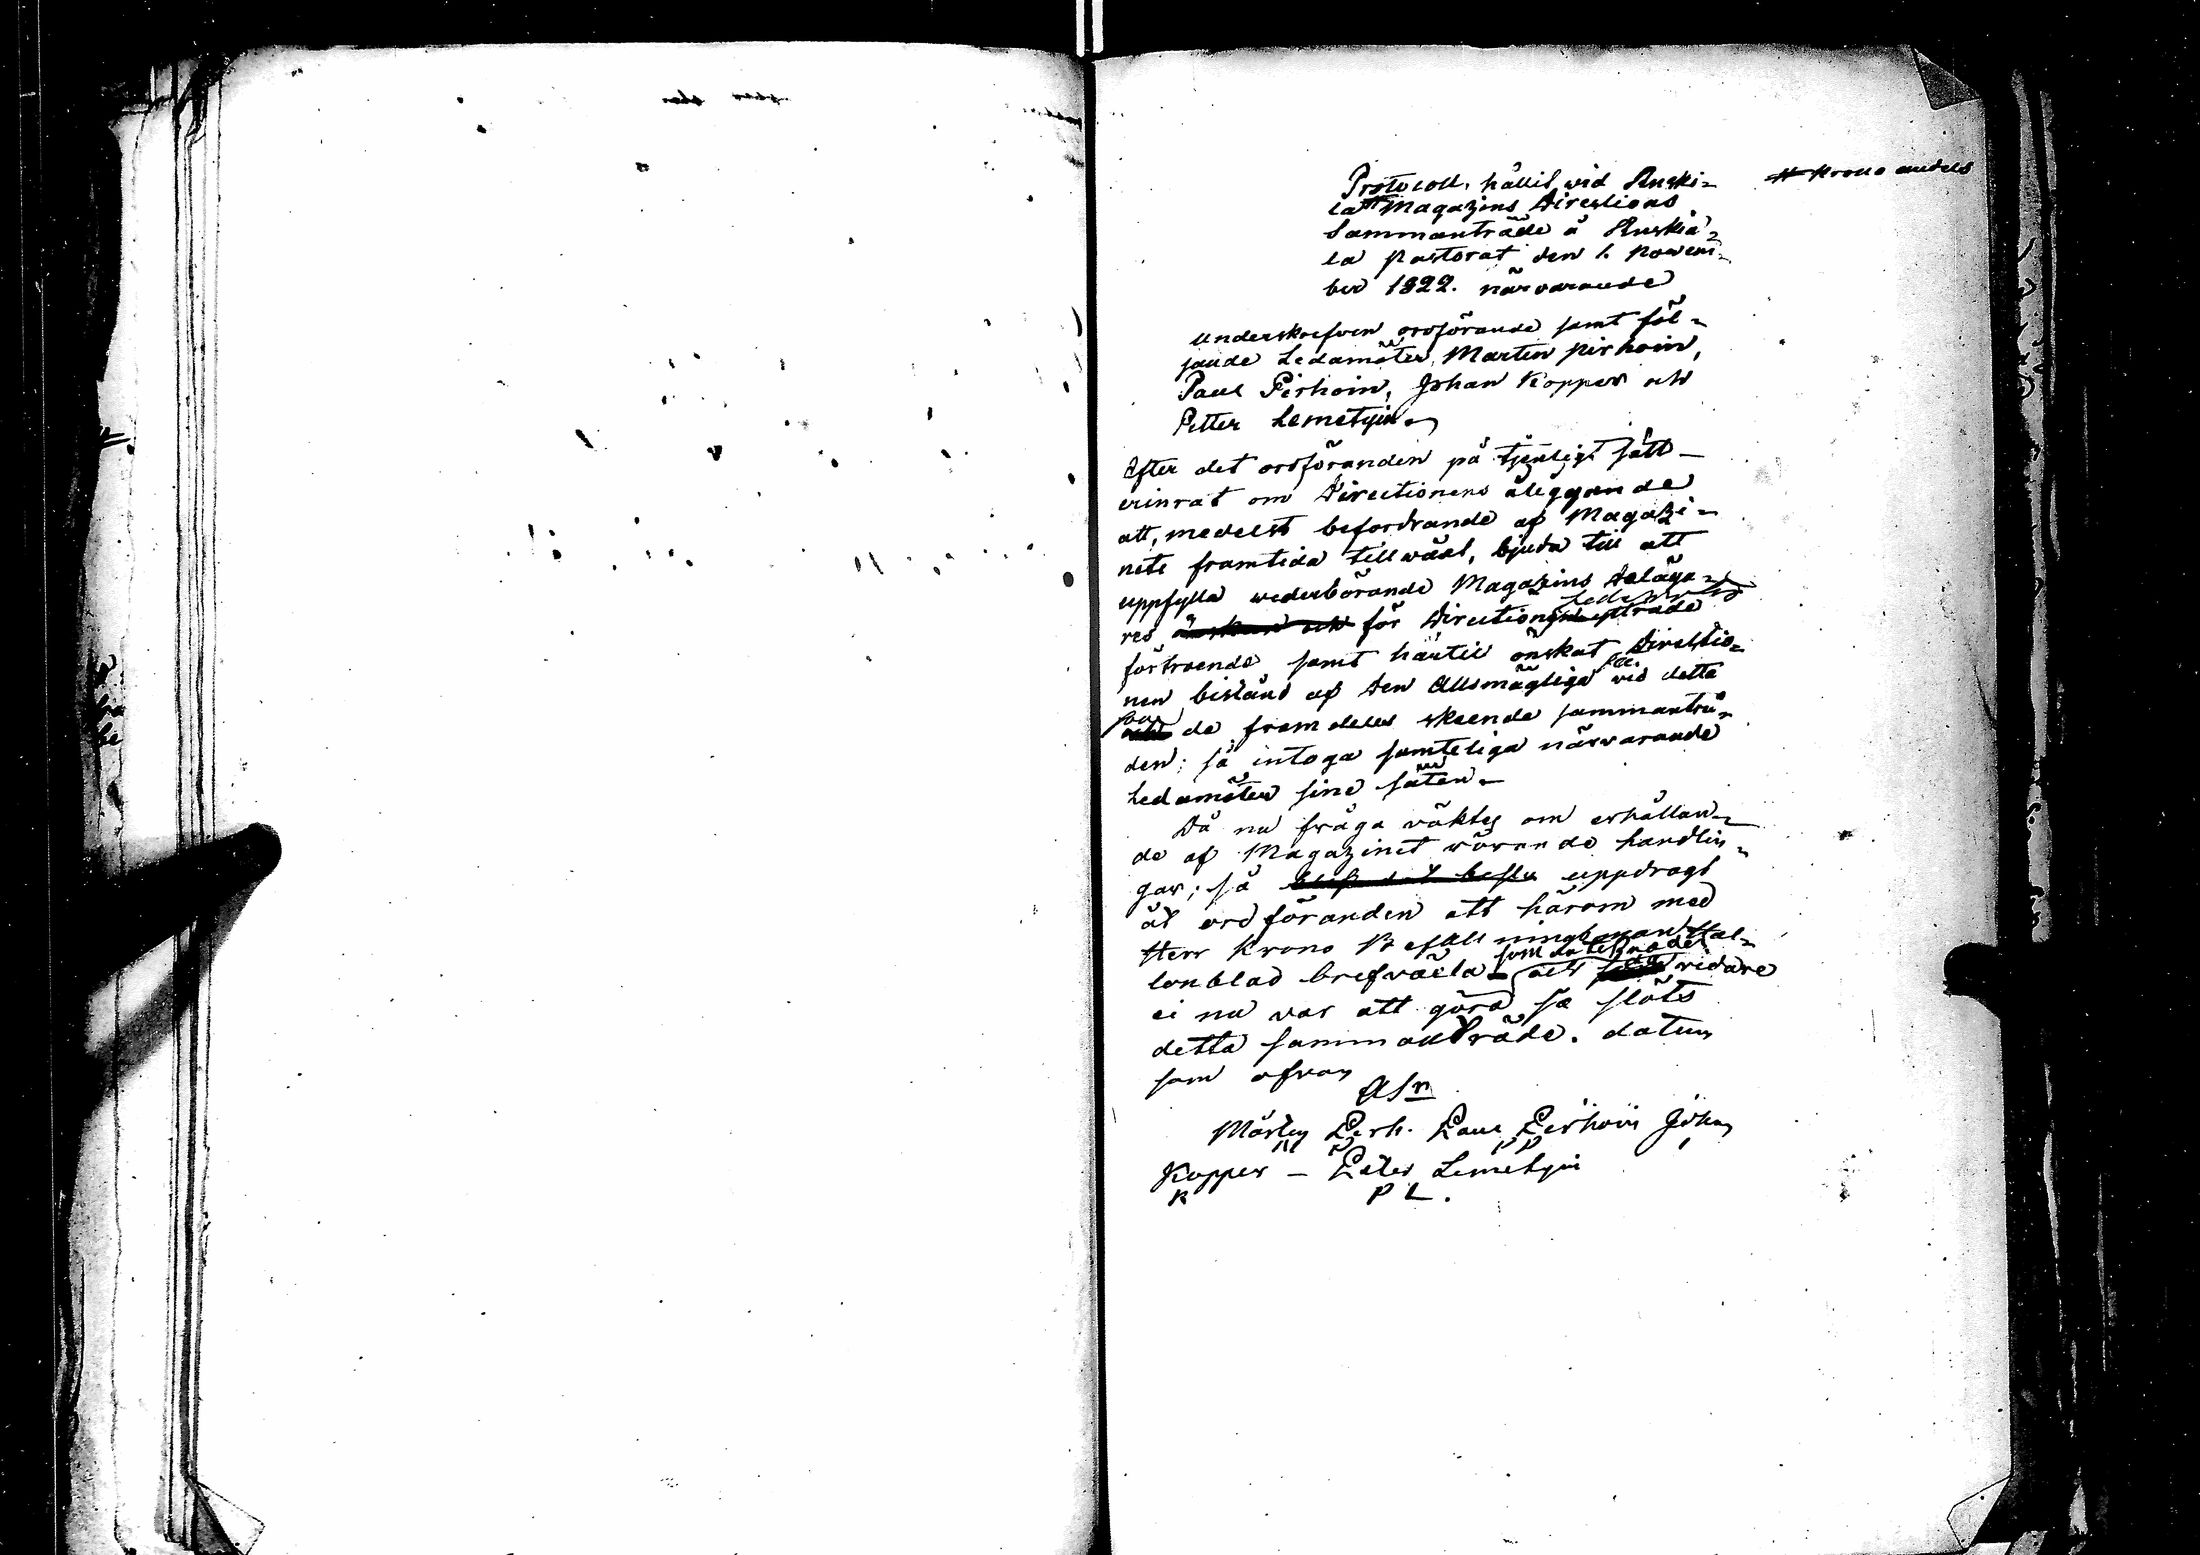 Protocoll, hållit wid Ruski-
la # Magazins Directions
Sammanträde å Ruskia-
la Pastorat den 1. Novem-
ber 1822. närvarande
# Krono andels
underskrefven ordförande samt föl-
jande Ledamöter, Martin Pirhoin,
Paul Pirhoin, Johan Kopper och
Petter Lemetyin
Efter det ordföranden på tjenligt sätt
erinrat om Directionens åliggande
att, medelst befordrande af Magazi-
nets framtida tillwäxt, bjuda till att
uppfylla wederbörande Magazins Deläga-
res för Directions yttrade
förtroende samt härtil önskat Directio-
nen bistånd af Den Allsmägtige vid detta
som de framdeles skeende sammanträ-
den; så intogo samteliga närvarande
Ledamöter sine säten.
Då nu fråga väktes om erhållan-
de af Magazinet rörande handlin-
gar; så uppdrogs
åt ordföranden att härom med
Herr Krono Befallningsman Hal-
lonblad brefväxla och vidare
ei nu var att göra så slöts
detta sammanträde. datum
som ofvan
Mårten Pirh. Paul Pirhoin Johan
Kopper – Petter Lemetyin
K P L.